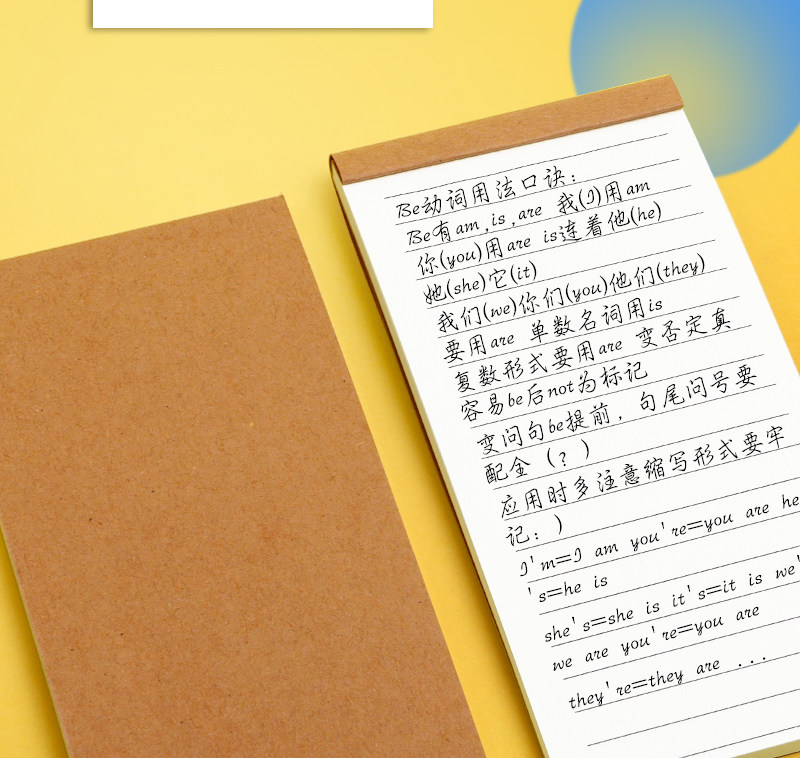 Be动词用法口诀：
Be有am ,is ,are 我(I)用am
你(you)用are is连着他(he)
她(she)它(it)
我们(we)你们(you)他们(they)
要用are 单数名词用is
复数形式要用are 变否定真
容易be后not为标记
变问句be提前，句尾问号要
配全（?）
应用时多注意缩写形式要牢
记：)
I'm=I am you're=you are he
's=he is
she's=she is it's=it is we'
we are you're=you are
they're=they are ...